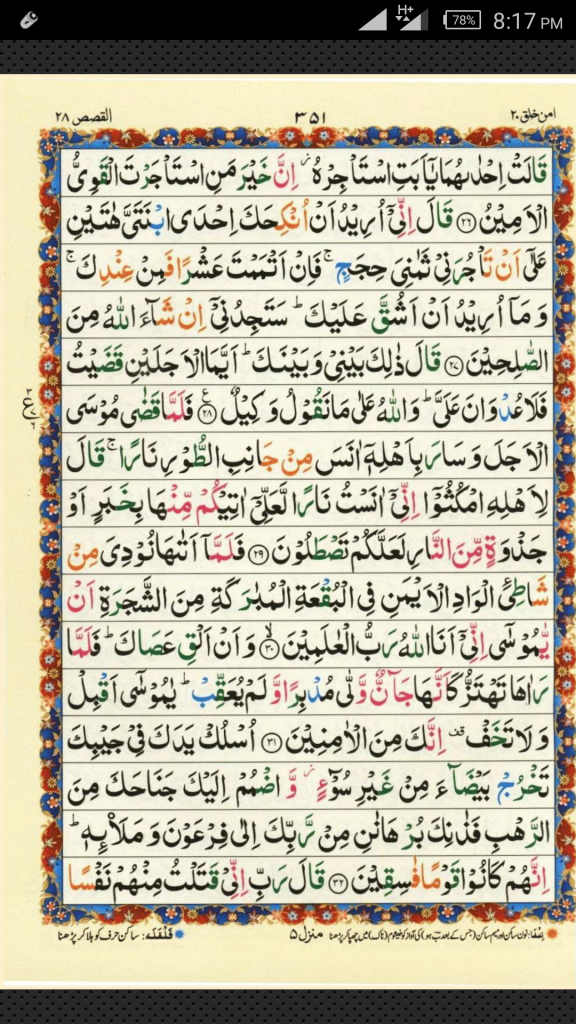 H+
78%
8:17 PM
امن خلق ۲۰
۳۵۱
القصص ۲۸
قَالَتْ اِحْدٰىهُمَا يٰۤاَبَتِ اسْتَاْجِرْهُ ؗ اِنَّ خَيْرَ مَنِ اسْتَاْجَرْتَ الْقَوِيُّ
الْاَمِيْنُ ﴿۲۶﴾ قَالَ اِنِّيْۤ اُرِيْدُ اَنْ اُنْكِحَكَ اِحْدَى ابْنَتَيَّ هٰتَيْنِ
عَلٰۤى اَنْ تَاْجُرَنِيْ ثَمٰنِيَ حِجَجٍ ۚ فَاِنْ اَتْمَمْتَ عَشْرًا فَمِنْ عِنْدِكَ ۚ
وَ مَاۤ اُرِيْدُ اَنْ اَشُقَّ عَلَيْكَ ؕ سَتَجِدُنِيْۤ اِنْ شَآءَ اللّٰهُ مِنَ
الصّٰلِحِيْنَ ﴿۲۷﴾ قَالَ ذٰلِكَ بَيْنِيْ وَ بَيْنَكَ ؕ اَيَّمَا الْاَجَلَيْنِ قَضَيْتُ
فَلَا عُدْوَانَ عَلَيَّ ؕ وَ اللّٰهُ عَلٰى مَا نَقُوْلُ وَكِيْلٌ ﴿۲۸﴾ فَلَمَّا قَضٰى مُوْسَى
الْاَجَلَ وَ سَارَ بِاَهْلِهٖۤ اٰنَسَ مِنْ جَانِبِ الطُّوْرِ نَارًا ۚ قَالَ
لِاَهْلِهِ امْكُثُوْۤا اِنِّيْۤ اٰنَسْتُ نَارًا لَّعَلِّيْۤ اٰتِيْكُمْ مِّنْهَا بِخَبَرٍ اَوْ
جَذْوَةٍ مِّنَ النَّارِ لَعَلَّكُمْ تَصْطَلُوْنَ ﴿۲۹﴾ فَلَمَّاۤ اَتٰىهَا نُوْدِيَ مِنْ
شَاطِئِ الْوَادِ الْاَيْمَنِ فِي الْبُقْعَةِ الْمُبٰرَكَةِ مِنَ الشَّجَرَةِ اَنْ
يّٰمُوْسٰۤى اِنِّيْۤ اَنَا اللّٰهُ رَبُّ الْعٰلَمِيْنَ ﴿۳۰﴾ وَ اَنْ اَلْقِ عَصَاكَ ؕ فَلَمَّا
رَاٰهَا تَهْتَزُّ كَاَنَّهَا جَآنٌّ وَّلّٰى مُدْبِرًا وَّ لَمْ يُعَقِّبْ ؕ يٰمُوْسٰۤى اَقْبِلْ
وَ لَا تَخَفْ قف اِنَّكَ مِنَ الْاٰمِنِيْنَ ﴿۳۱﴾ اُسْلُكْ يَدَكَ فِيْ جَيْبِكَ
تَخْرُجْ بَيْضَآءَ مِنْ غَيْرِ سُوْٓءٍ ؗ وَّ اضْمُمْ اِلَيْكَ جَنَاحَكَ مِنَ
الرَّهْبِ فَذٰنِكَ بُرْهَانٰنِ مِنْ رَّبِّكَ اِلٰى فِرْعَوْنَ وَ مَلَا۟ئِهٖ ؕ
اِنَّهُمْ كَانُوْا قَوْمًا فٰسِقِيْنَ ﴿۳۲﴾ قَالَ رَبِّ اِنِّيْ قَتَلْتُ مِنْهُمْ نَفْسًا
ع
اخفا: نون ساکن اور میم ساکن (جس کے بعد ب ہو) کی آواز کو خیشوم (ناک) میں چھپا کر پڑھنا
منزل ۵
قلقلہ: ساکن حرف کو ہلا کر پڑھنا